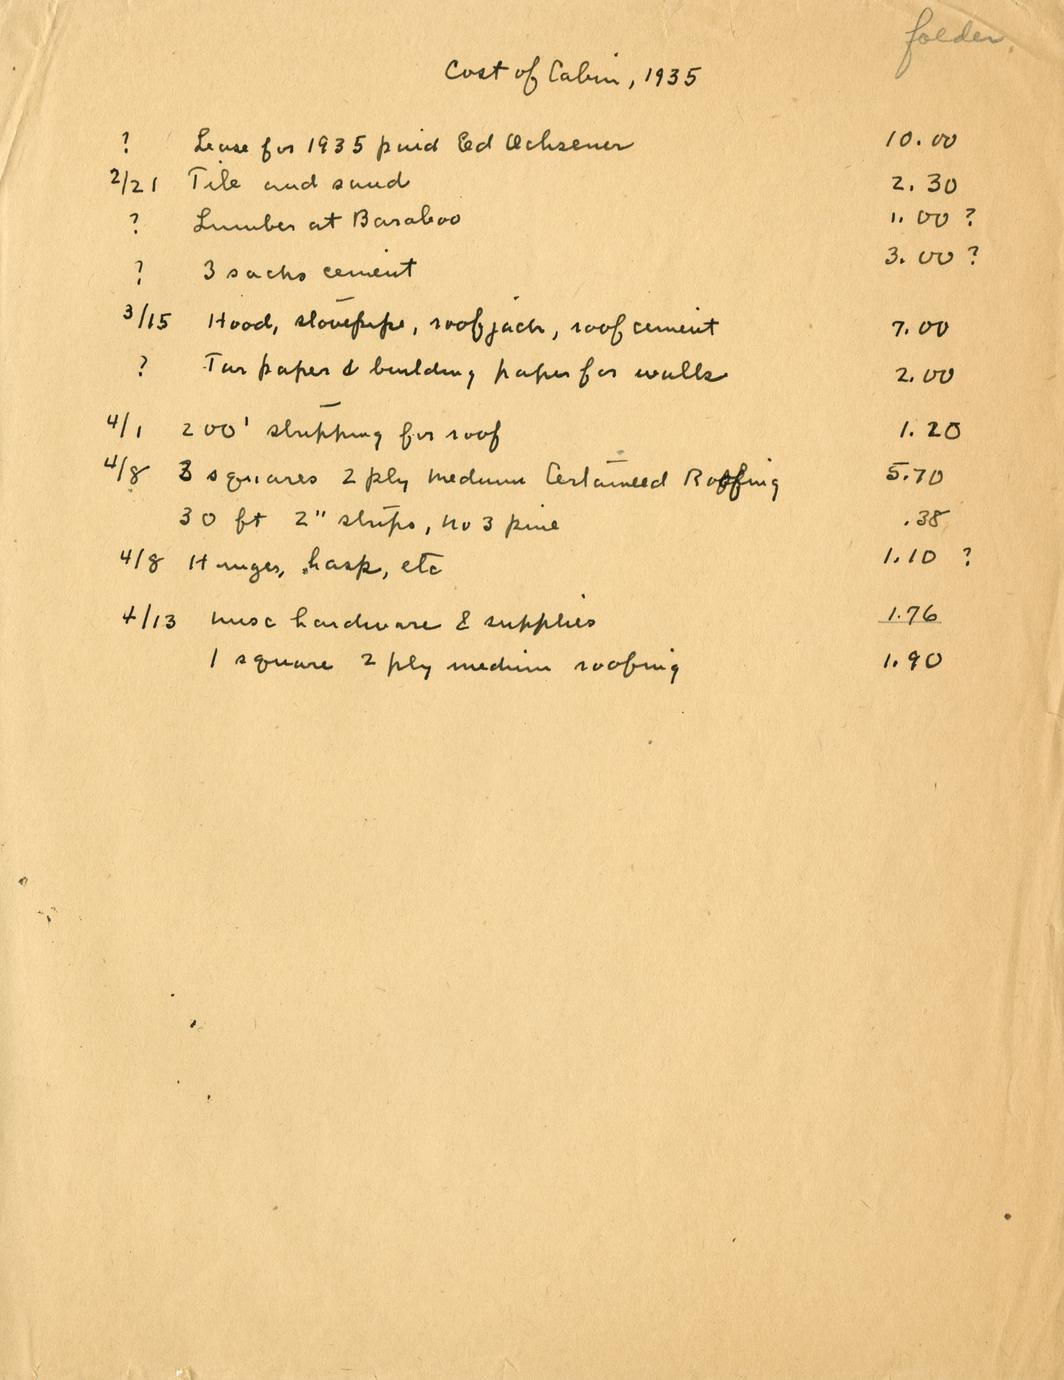 folder.
Cost of Cabin, 1935
? Lease for 1935 paid Ed Ochsener 10.00
2/21 Tile and sand 2.30
? Lumber at Baraboo 1.00 ?
? 3 sacks cement 3.00 ?
3/15 Hood, stovepipe, roof jack, roof cement 7.00
? Tar paper & building paper for walls 2.00
4/1 200' stripping for roof 1.20
4/8 3 squares 2 ply medium Certainteed Roofing 5.70
30 ft 2" strips, no 3 pine .38
4/8 Hinges, hasp, etc 1.10 ?
4/13 misc hardware & supplies 1.76
1 square 2 ply medium roofing 1.90